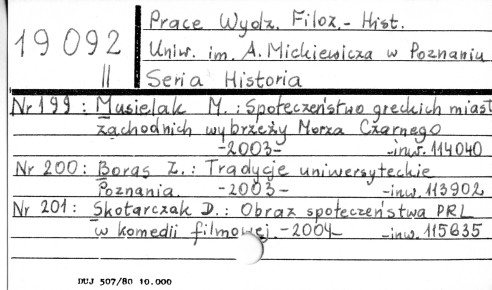 19092
II
Prace Wydz. Filoz.-Hist.
Uniw. im. A. Mickiewicza w Poznaniu
Seria Historia
Nr 199: Musielak M.: Społeczeństwo greckich miast
zachodnich wybrzeży Morza Czarnego
-2003- -inw. 114040
Nr 200: Boras Z.: Tradycje uniwersyteckie
Poznania. -2003- -inw. 113902
Nr 201: Skotarczak D.: Obraz społeczeństwa PRL
w komedii filmowej -2004- -inw. 115635
DUJ 507/80 10.000